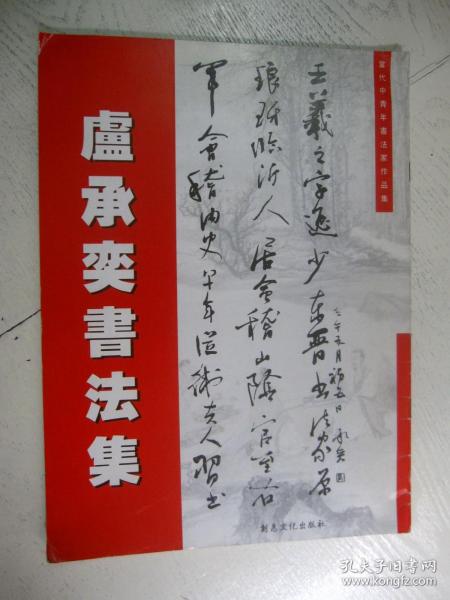 當代中青年書法家作品集
盧承奕書法集
王羲之字逸少東晉書法家原
琅玡臨沂人居會稽山陰官至右
軍會稽內史早年從衛夫人習書
五月初五日承奕
創意文化出版社
孔夫子旧书网
www.kongfz.com